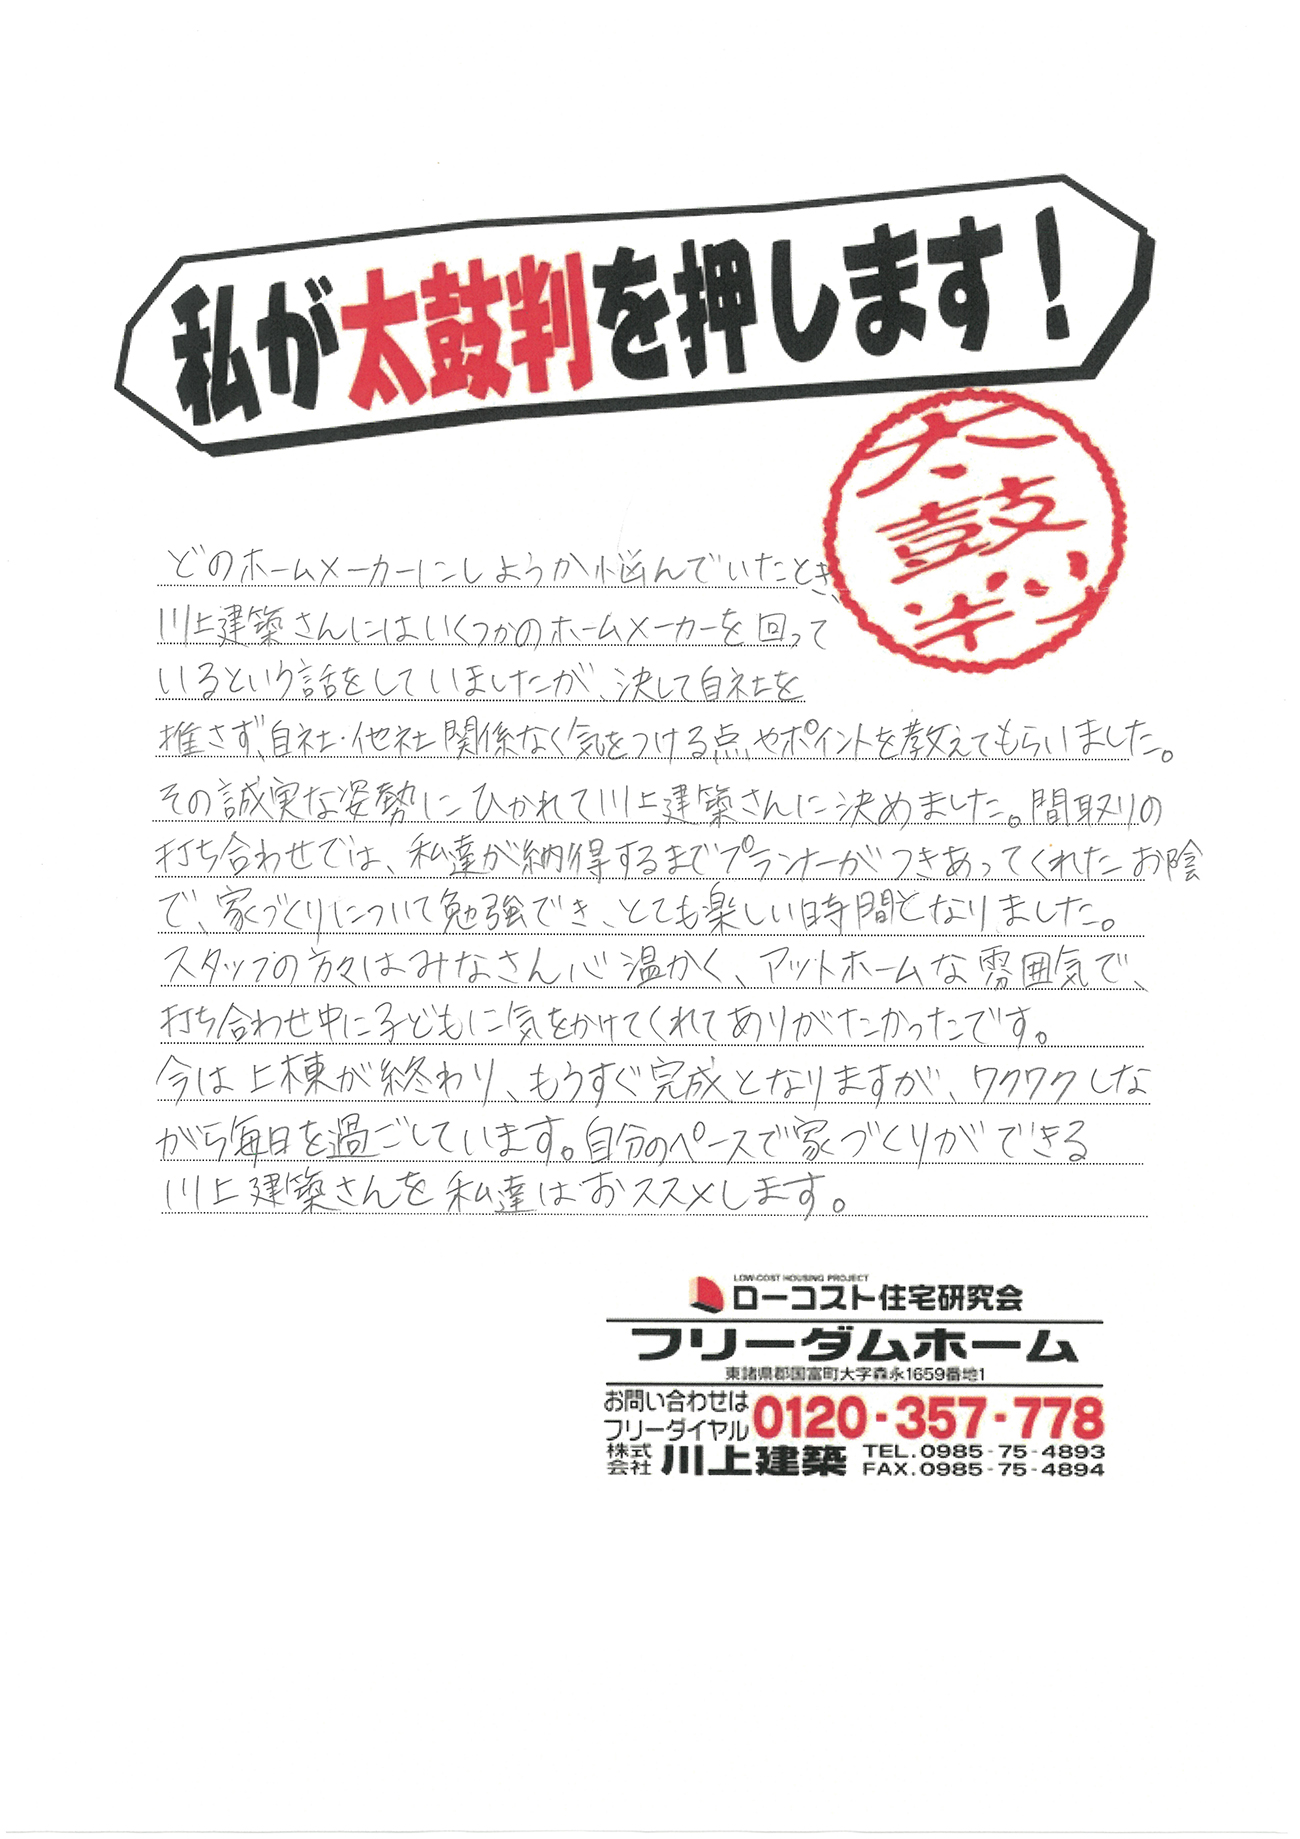 私が太鼓判を押します！
太
鼓
判
どのホームメーカーにしようか悩んでいたとき、
川上建築さんにはいくつかのホームメーカーを回って
いるという話をしていましたが、決して自社を
推さず、自社・他社関係なく気をつける点やポイントを教えてもらいました。
その誠実な姿勢にひかれて川上建築さんに決めました。間取りの
打ち合わせでは、私達が納得するまでプランナーがつきあってくれたお陰
で、家づくりについて勉強でき、とても楽しい時間となりました。
スタッフの方々はみなさん心温かく、アットホームな雰囲気で、
打ち合わせ中に子どもに気をかけてくれてありがたかったです。
今は上棟が終わり、もうすぐ完成となりますが、ワクワクしな
がら毎日を過ごしています。自分のペースで家づくりができる
川上建築さんを私達はおススメします。
LOW-COST HOUSING PROJECT
ローコスト住宅研究会
フリーダムホーム
東諸県郡国富町大字森永1659番地1
お問い合わせは
フリーダイヤル 0120-357-778
株式会社 川上建築 TEL.0985-75-4893
FAX.0985-75-4894